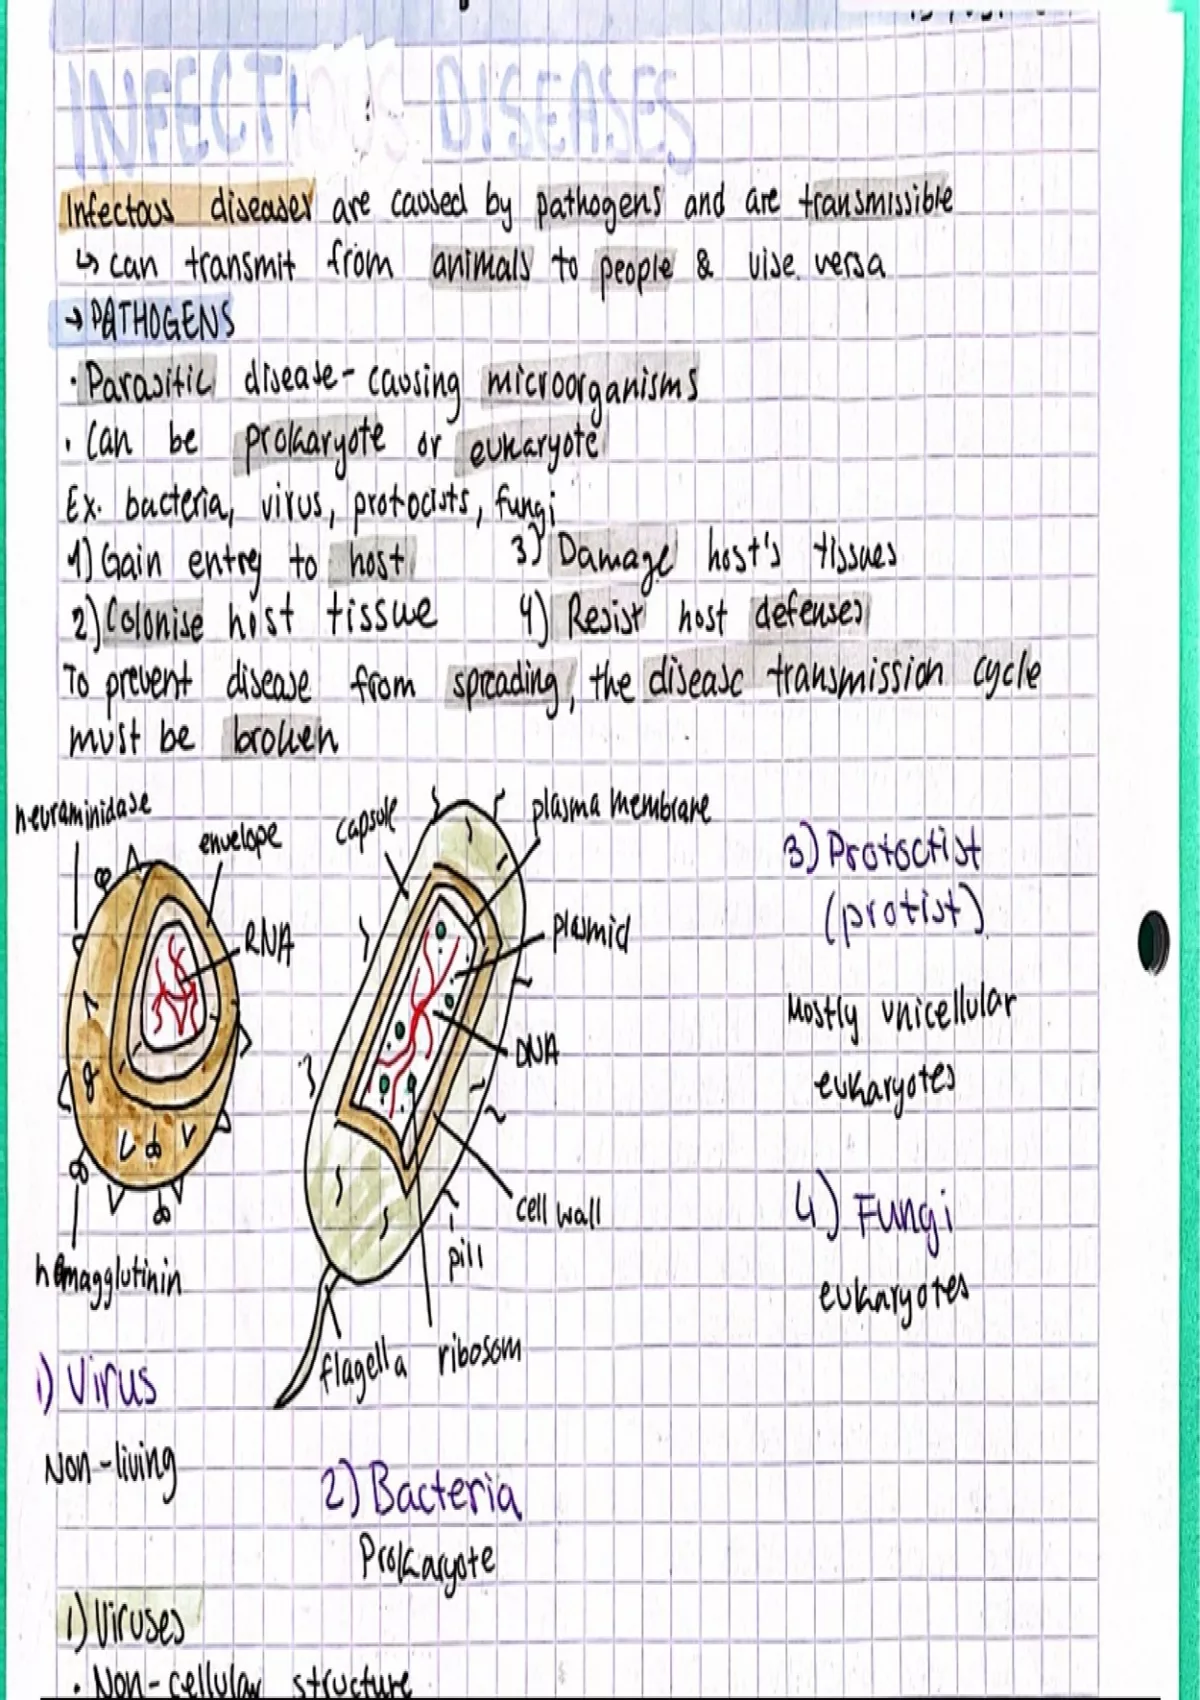 INFECTIOUS DISEASES
Infectous diseases are caused by pathogens and are transmissible
↳ can transmit from animals to people & vise versa
→ PATHOGENS
· Parasitic disease-causing microorganisms
· Can be prokaryote or eukaryote
Ex. bacteria, virus, protocists, fungi
1) Gain entry to host 3) Damage host's tissues
2) Colonise host tissue 4) Resist host defenses
To prevent disease from spreading, the disease transmission cycle
must be broken
neuraminidase
envelope
RNA
hemagglutinin
1) Virus
Non-living
capsule
plasma membrane
plasmid
DNA
cell wall
pili
ribosom
flagella
2) Bacteria
Prokaryote
3) Protoctist
(protist)
Mostly unicellular
eukaryotes
4) Fungi
eukaryotes
1) Viruses
· Non-cellular structure